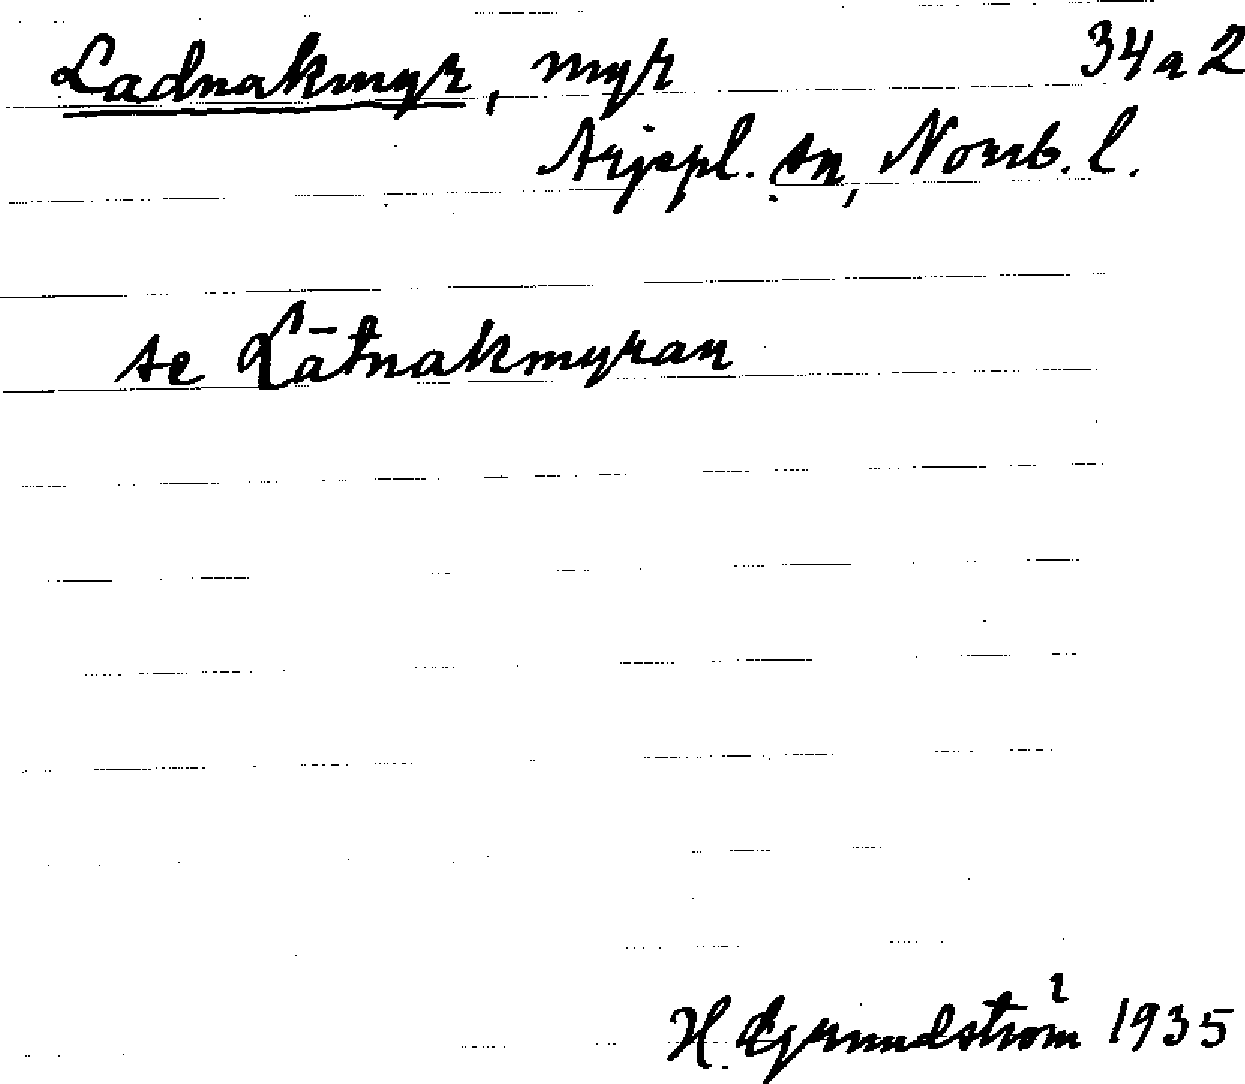 Ladnakmyr, myr 34 a 2
Arjepl. sn, Norrb. l.
se Lātnakmyran
H. Grundström 1935